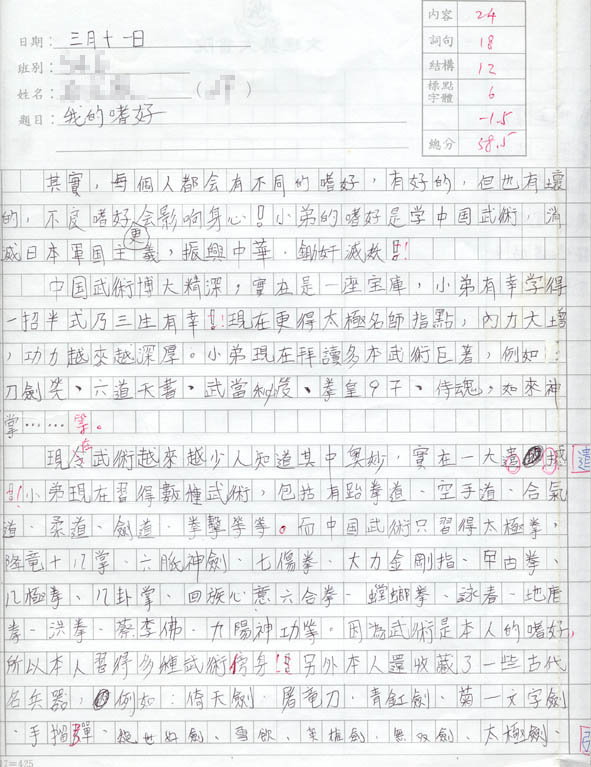 內容 24
詞句 18
結構 12
標點字體 6
-1.5
總分 58.5
日期：三月十一日
班別：
姓名： （ ）
題目：我的嗜好
其實，每個人都会有不同的嗜好，有好的，但也有壞
的，不良嗜好会影响身心！！小弟的嗜好是学中国武術，消
滅日本軍国主義，振興中華，鋤奸滅敵！！
更
中国武術博大精深，實在是一座宝庫，小弟有幸学得
一招半式乃三生有幸！！現在更得太極名師指點，內力大增
，功力越來越深厚。小弟現在拜讀多本武術巨著，例如：
刀劍笑、六道天書、武當 、拳皇97、侍魂，如來神
掌……等。
現今武術越來越少人知道其中奧妙，實在一大遺憾 遺
在
！！小弟現在習得數種武術，包括有跆拳道、空手道、合氣
道、柔道、劍道、拳擊等等。而中国武術只習得太極拳，
降竜十八掌、六脈神劍、七傷拳、大力金剛指、 古拳、
八極拳、八卦掌、回族心意六合拳、螳螂拳、詠春、地
拳、洪拳、蔡李佛、九陽神功等。因為武術是本人的嗜好，
所以本人習得多種武術傍身！！另外本人還收藏了一些古代
名兵器，例如：倚天劍、屠竜刀、青釭劍、菊一文字劍
、手榴彈、絕世好劍、雪飲、英雄劍、無双劍、太極劍、
17=425